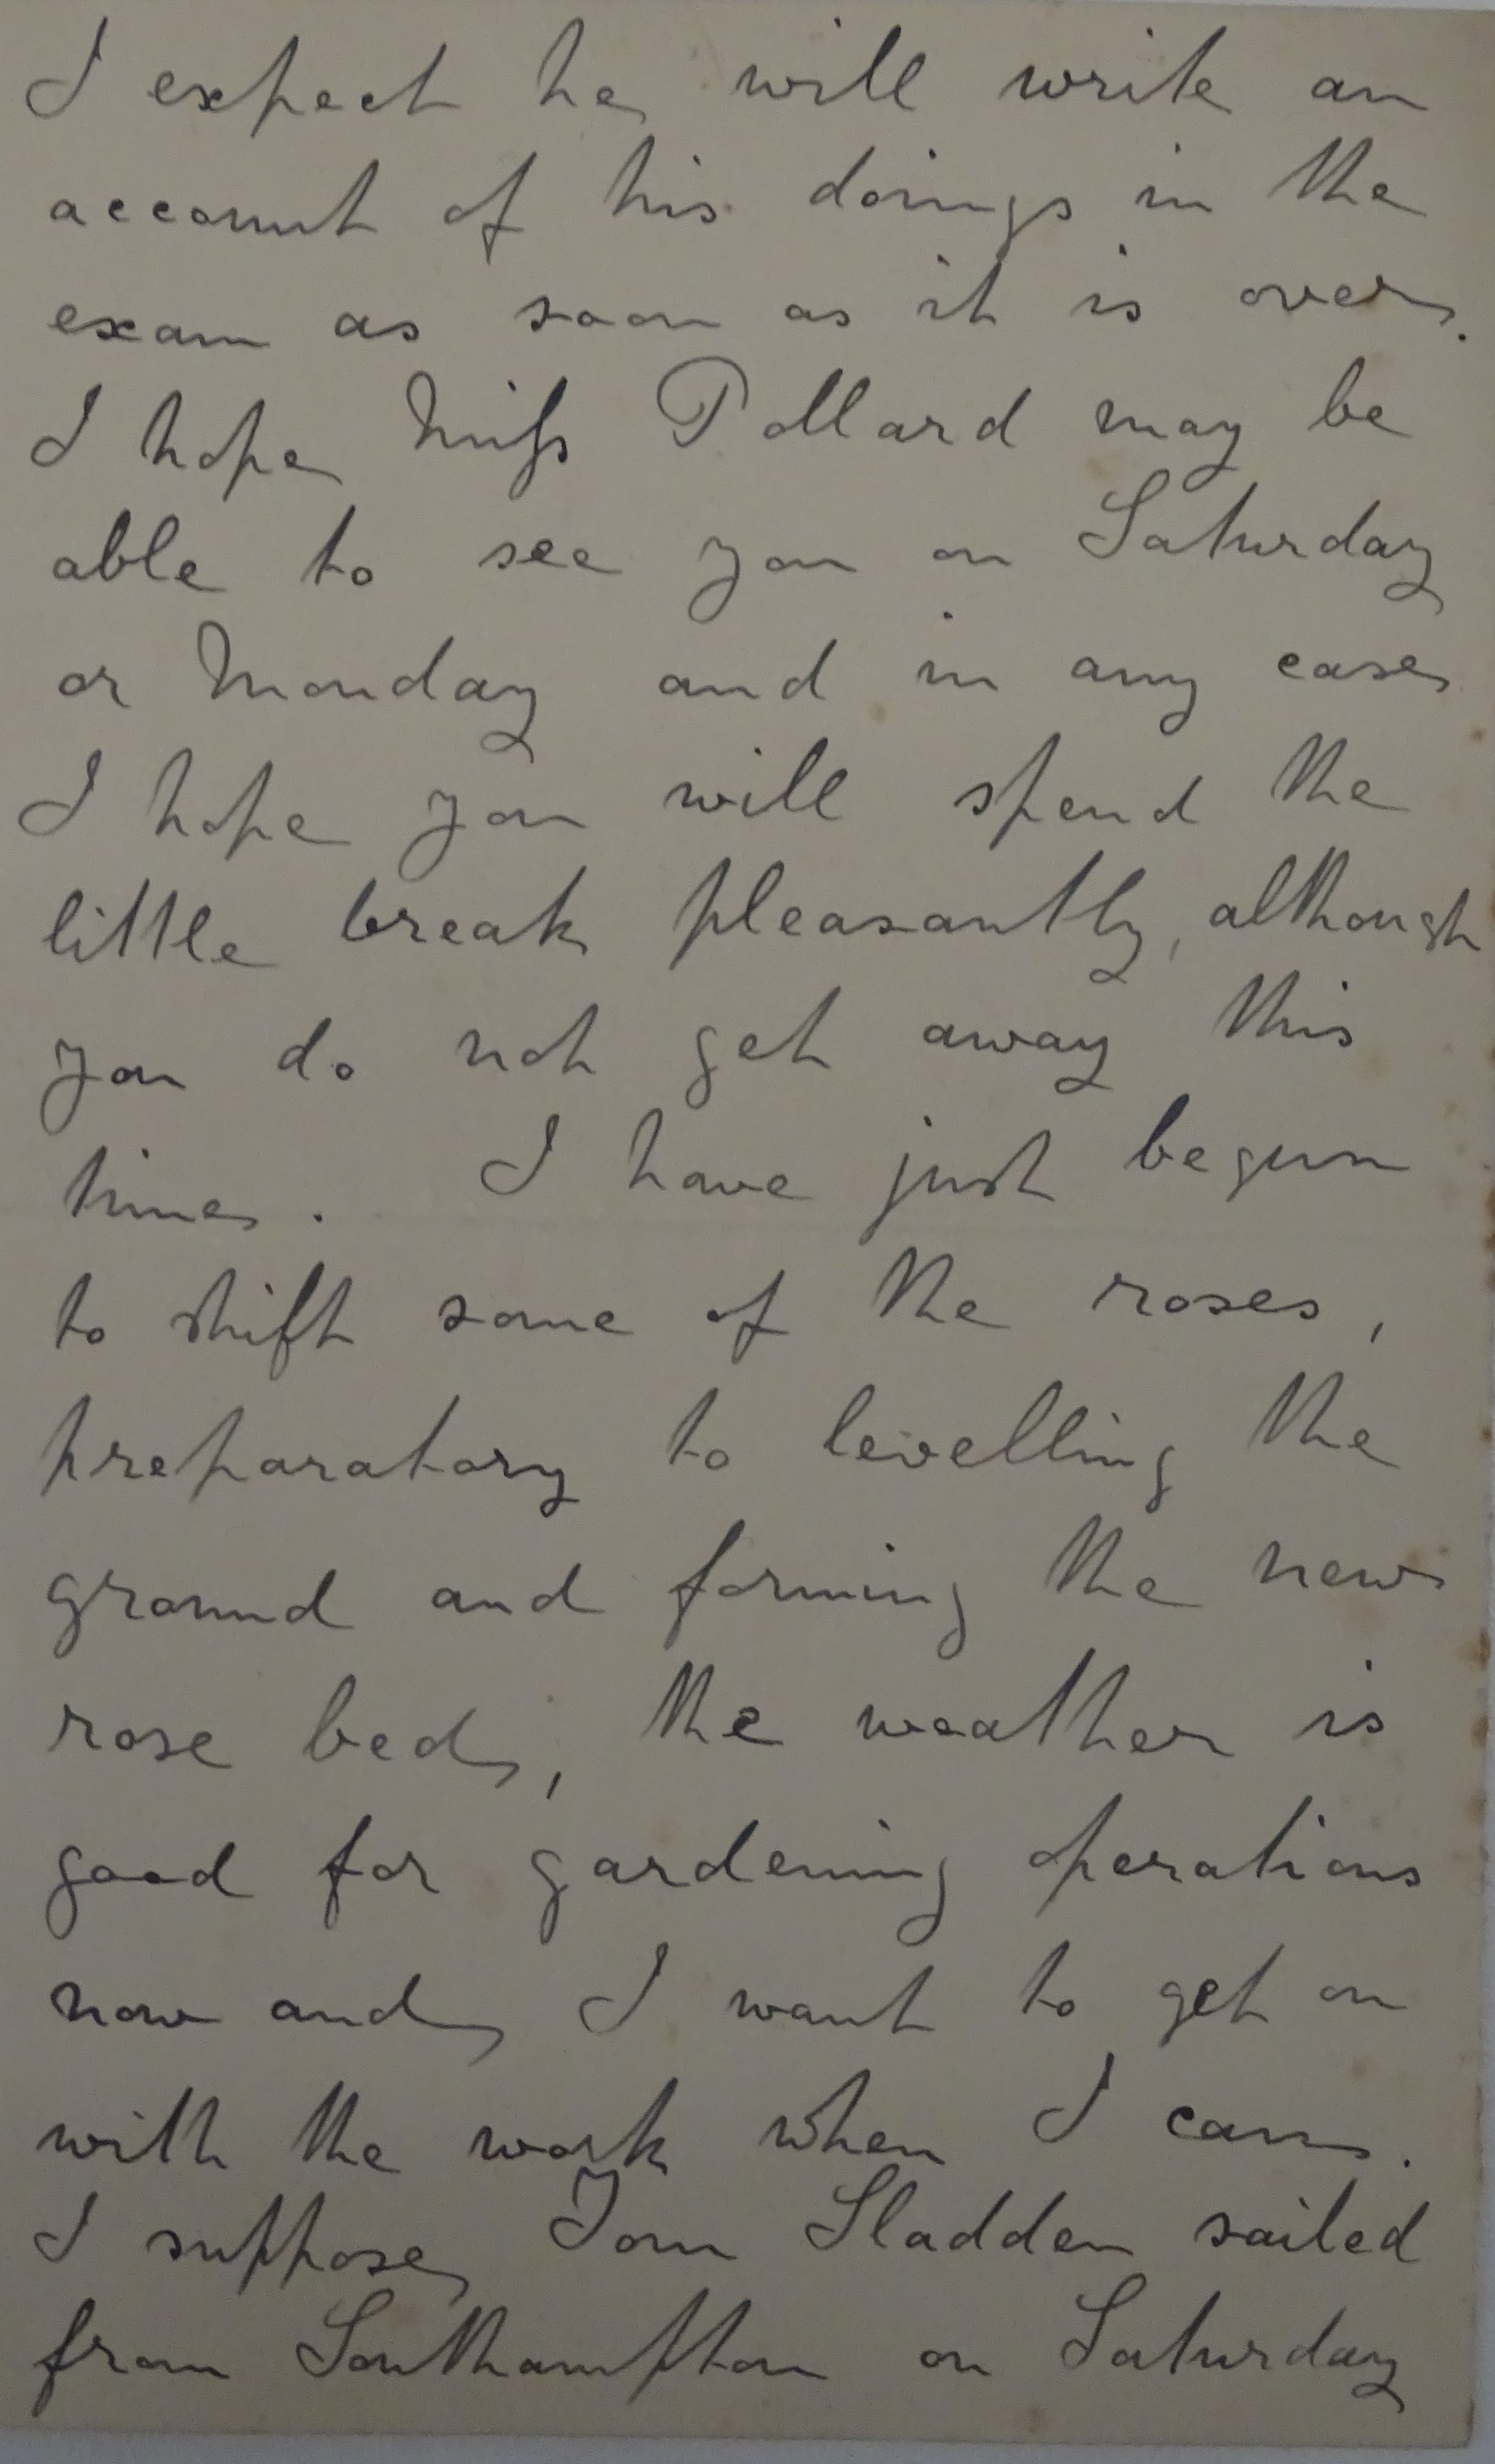 I expect he will write an
account of his doings in the
exam as soon as it is over.
I hope Miss Pollard may be
able to see you on Saturday
or Monday and in any case
I hope you will spend the
little break pleasantly, although
you do not get away this
time. I have just begun
to shift some of the roses,
preparatory to levelling the
ground and forming the new
rose bed, the weather is
good for gardening operations
now and I want to get on
with the work when I can.
I suppose Tom Sladden sailed
from Southampton on Saturday